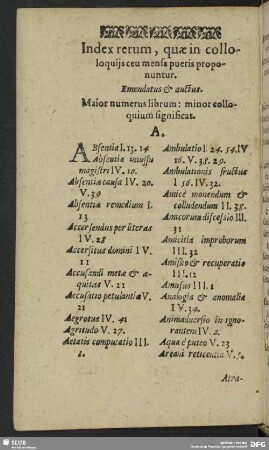 Index rerum, quæ in collo-
loquijs ceu mensa pueris propo-
nuntur.
Emendatus & auctus.
Maior numerus librum: minor collo-
quium significat.
A.
ABsentia I. 13. 14
Absentia iniussu
magistri IV. 10.
Absentiæ causa IV. 20.
V. 39
Absentiæ remedium I.
13
Accersendus per literas
IV. 28
Accersitus domini IV.
11
Accusandi metæ & æ-
quitas V. 21
Accusatio petulantiæ V.
21
Aegrotus IV. 41
Aegritudo V. 27.
Aetatis computatio III
8.
Ambulatio I. 24. 54. IV
16. V. 38. 29.
Ambulationis fructus
I 56. IV. 32.
Amicè monendum &
colludendum II. 38.
Amicorum discessio III.
31
Amicitia improborum
III. 32
Amissio & recuperatio
III. 12
Amusus III. 1
Analogia & anomalia
IV. 34.
Animadversio in igno-
rantem IV. 2.
Aqua è puteo V. 23
Arcani reticentia V. 5.
Atra-
SLUB
DFG